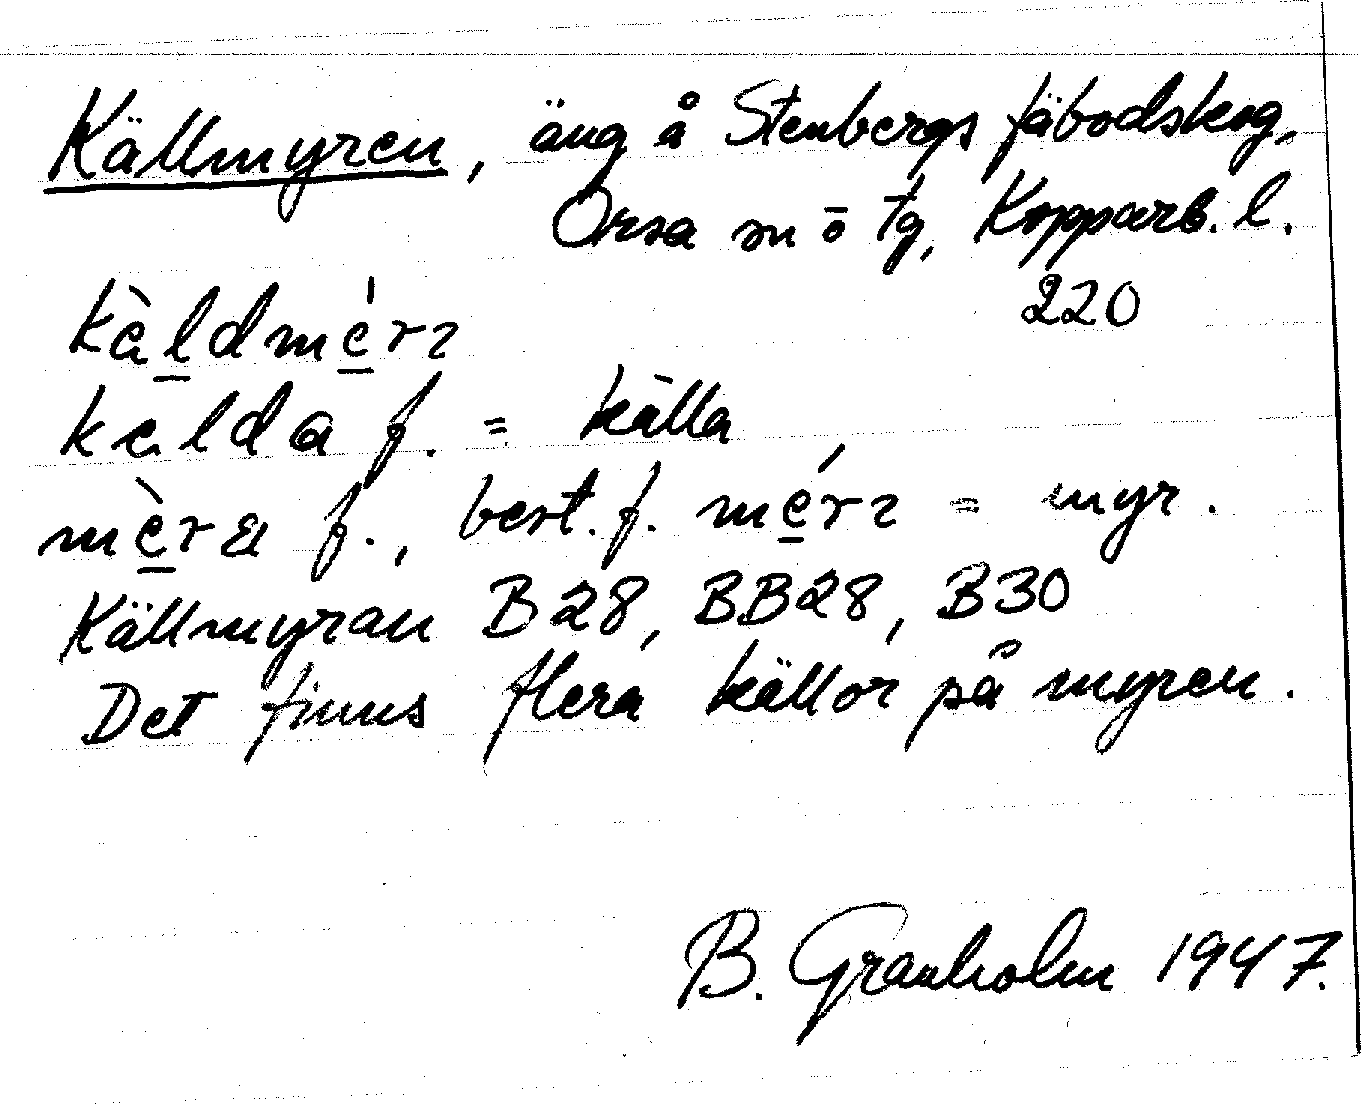 Källmyren, äng å Stenbergs fäbodskog,
Orsa sn o tg, Kopparb. l.
220
kàldmérɿ
kalda f. = källa
mèræ f., best. f. mérɿ = myr.
Källmyran B28, BB28, B30
Det finns flera källor på myren.
B. Granholm 1947.